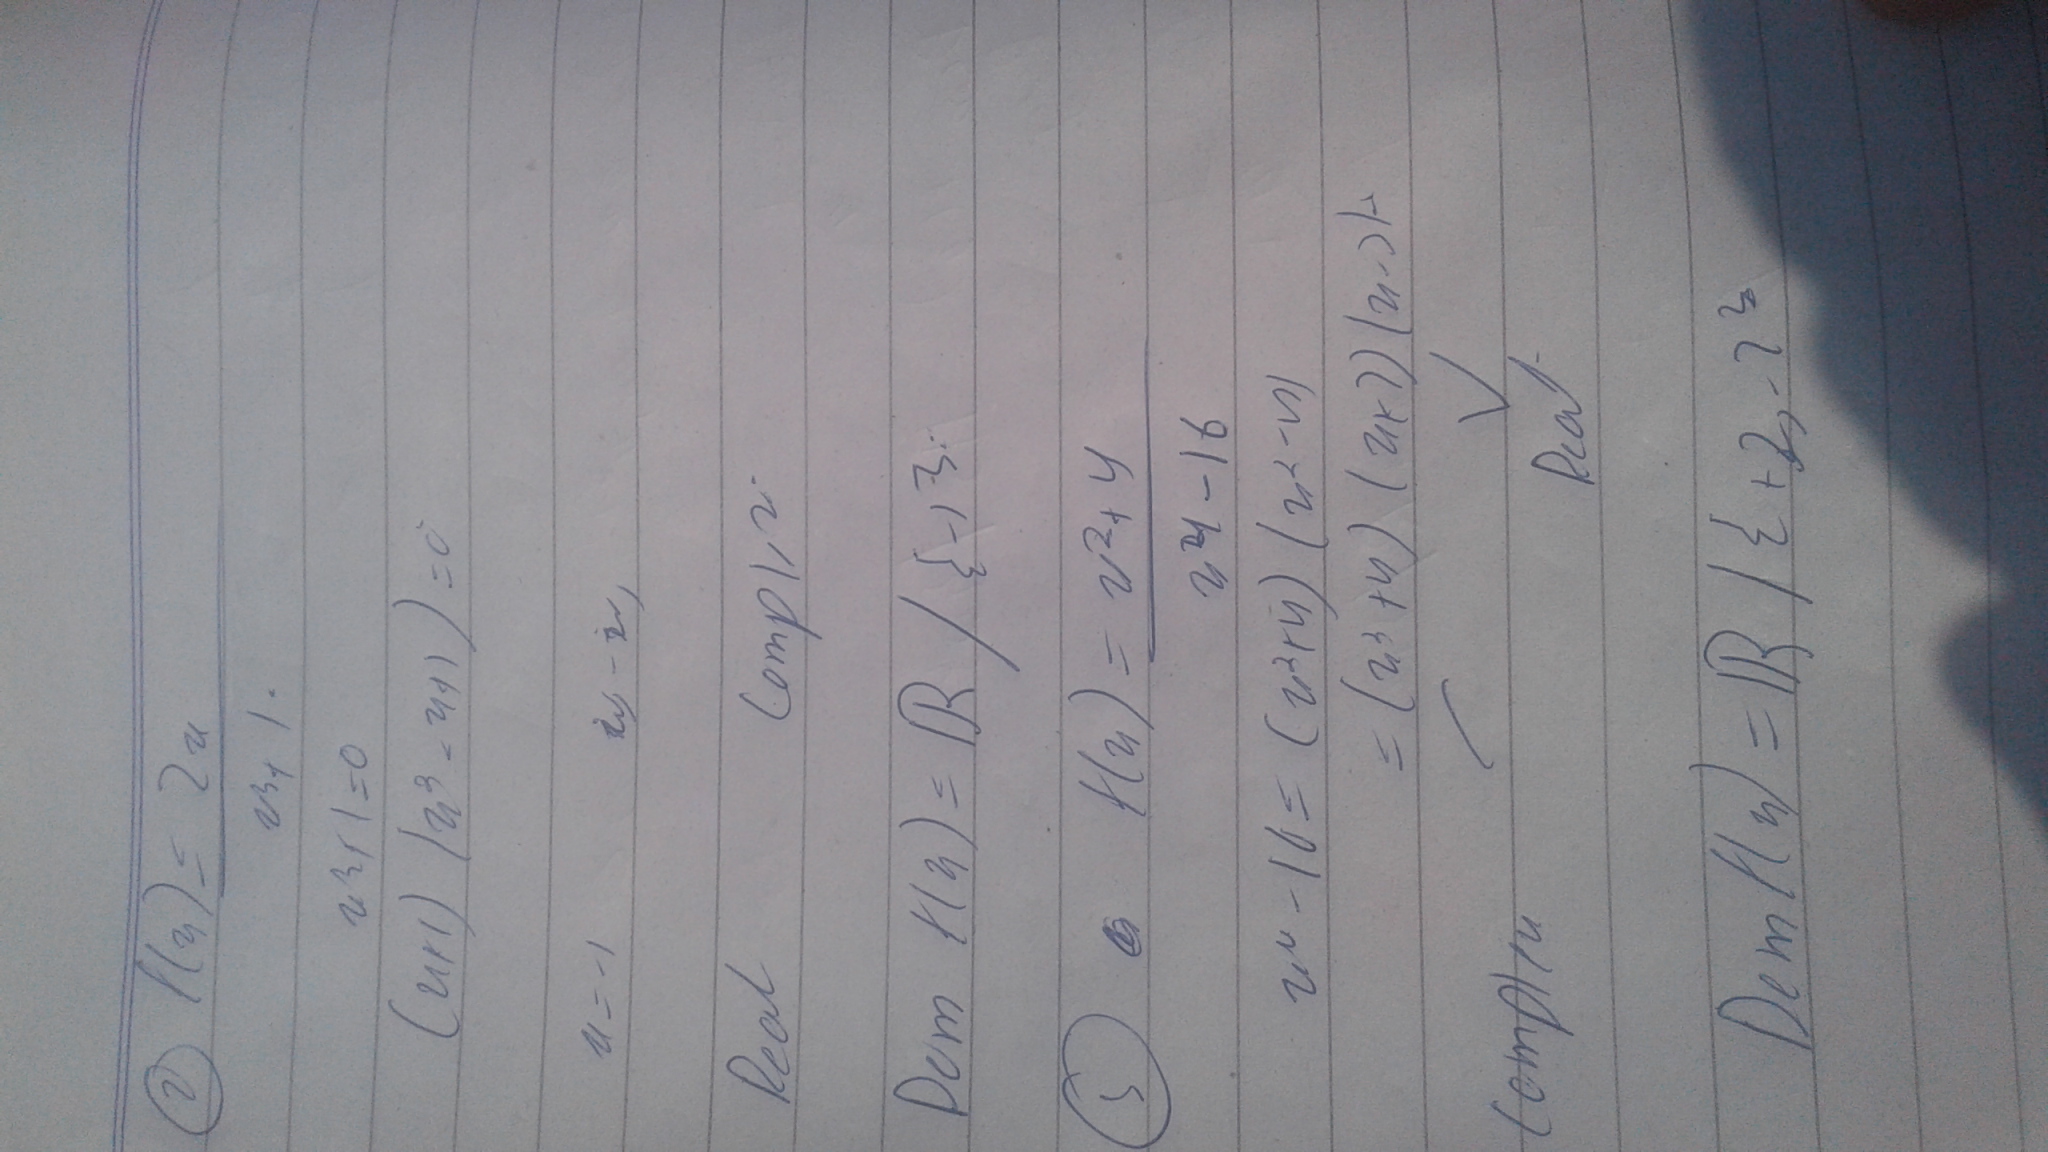 ② f(x) = 2x
x³+1.
x³+1=0
(x+1) (x²-x+1)=0
x=-1
Real Complex.
Dom f(x) = ℝ / {-1}.
f(x) = x²+4
x⁴-16
x⁴-16 = (x²+4) (x²-4)
= (x²+4) (x+2) (x-2)
Complex
Real
Dom f(x) = ℝ / {+2, -2}